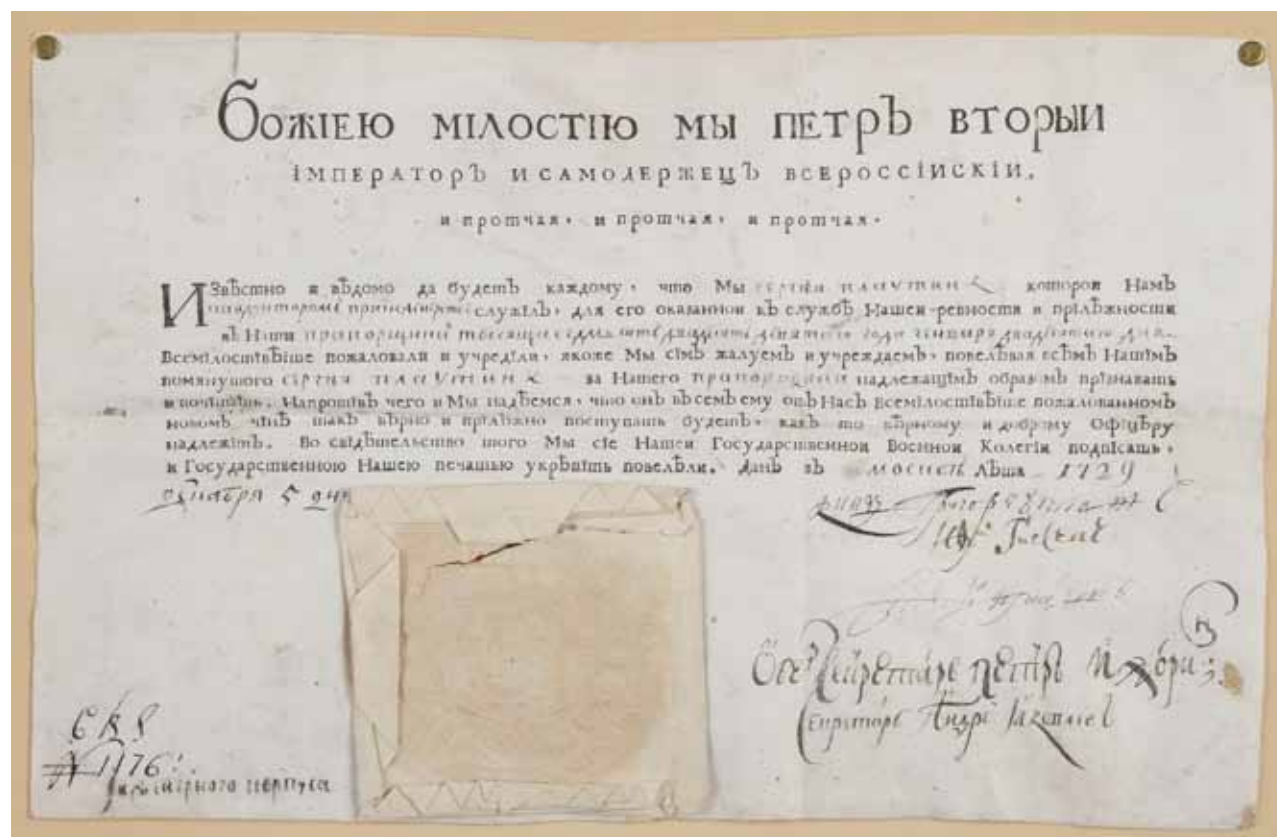 Божіею мілостію мы петръ вторыи
імператоръ и самодержецъ всероссіискіи,
и протчая, и протчая, и протчая,
Извѣстно и вѣдомо да будетъ каждому, что Мы сергѣя плаутина которои Намъ
служілъ, для его оказаннои къ службѣ Нашеи ревности и прілѣжности
въ Наши прапорщики тысяща седмь сотъ двадцять девятого года генваря
Всемілостівѣіше пожаловали и учреділи, якоже Мы сімъ жалуемъ и учреждаемъ, повелѣвая всѣмъ Нашімъ
помянутого сергѣя плаутина за Нашего прапорщика надлежащімъ образомъ прізнавать
и почітать, Напротівъ чего и Мы надѣемся, что онъ въ семъ ему отъ Насъ Всемілостівѣіше пожалованномъ
новомъ чінѣ такъ вѣрно и прілѣжно поступать будетъ, какъ то вѣрному и доброму Офіцѣру
надлежітъ. Во свідѣтельство того Мы сіе Нашеи Государственнои Военнои Колегіи подпісать,
и Государственною Нашею печатью укрѣпіть повелѣли. данъ въ москвѣ лѣта 1729
декабря 5 дня
Секретарь Андрѣ
№ 1176